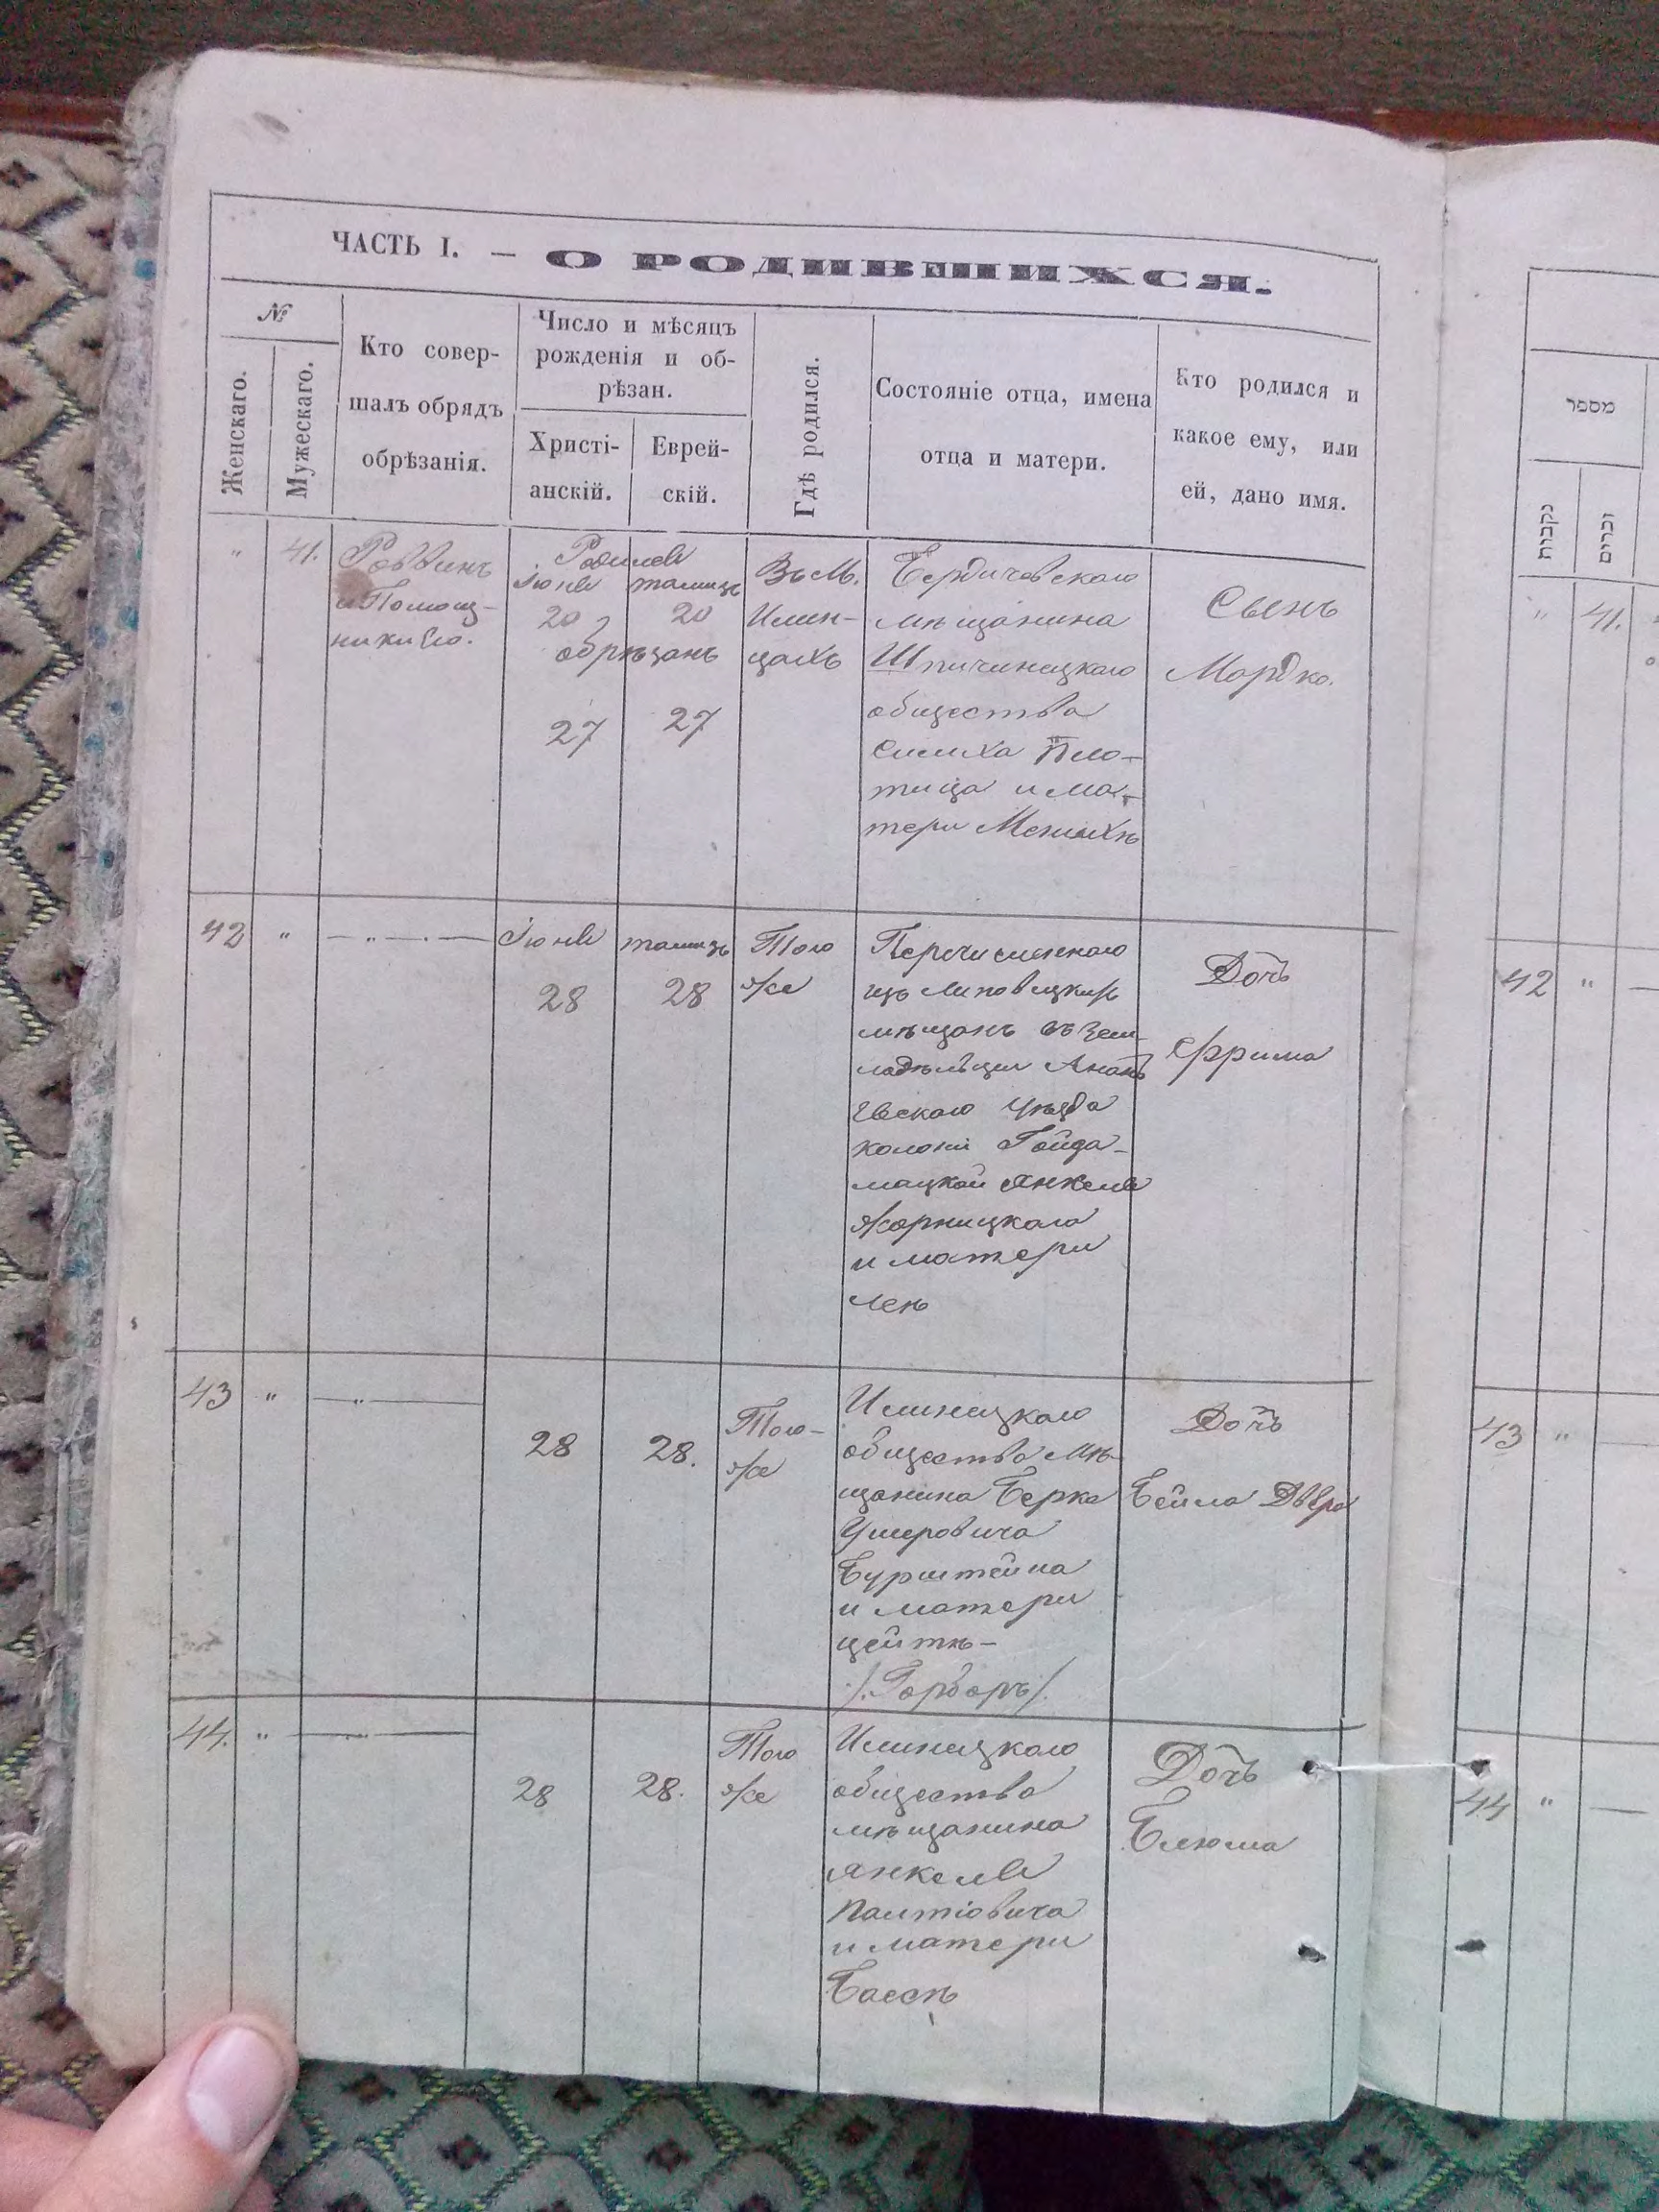 ЧАСТЬ I. — О РОДИВШИХСЯ.
№
Женскаго.
Мужескаго.
Кто совер-
шалъ обрядъ
обрѣзанія.
Число и мѣсяцъ
рожденія и об-
рѣзан.
Христі-
анскій.
Еврей-
скій.
Гдѣ родился.
Состояніе отца, имена
отца и матери.
Кто родился и
какое ему, или
ей, дано имя.
" 41.
Раввинъ
и Помощ-
ники Его.
Родился
Іюня
20
тамизъ
20
обрѣзанъ
27
27
Въ М.
Илин-
цахъ
Бердичовскаго
мѣщанина
Шпичинецкаго
общества
и ма-
тери Менихѣ
Сынъ
Мордко.
42 " — " — . —
Іюня
28
тамизъ
28
Того
же
Перечисленнаго
изъ Липовецкихъ
мѣщанъ въ Зем-
ладѣльцы Анань
евскаго уѣзда
колоніи Гайда-
мацкой Янкеля
Жорницкаго
и матери
Леѣ
Дочь
Фрима
43 " — " —
28
28.
Того-
же
Илинецкаго
общества мѣ-
щанина Берка
Ушеровича
Бурштейна
и матери
Цейтѣ-
/:Гарбаръ:/
Дочь
Бейла Двера
44. " — " —
28
28.
Того
же
Илинецкаго
общества
мѣщанина
Янкеля
Палтіовича
и матери
Бассѣ
Дочь
Блюма
מספר
נקבות
זכרים
" 41.
42 " —
43 " —
44 " —